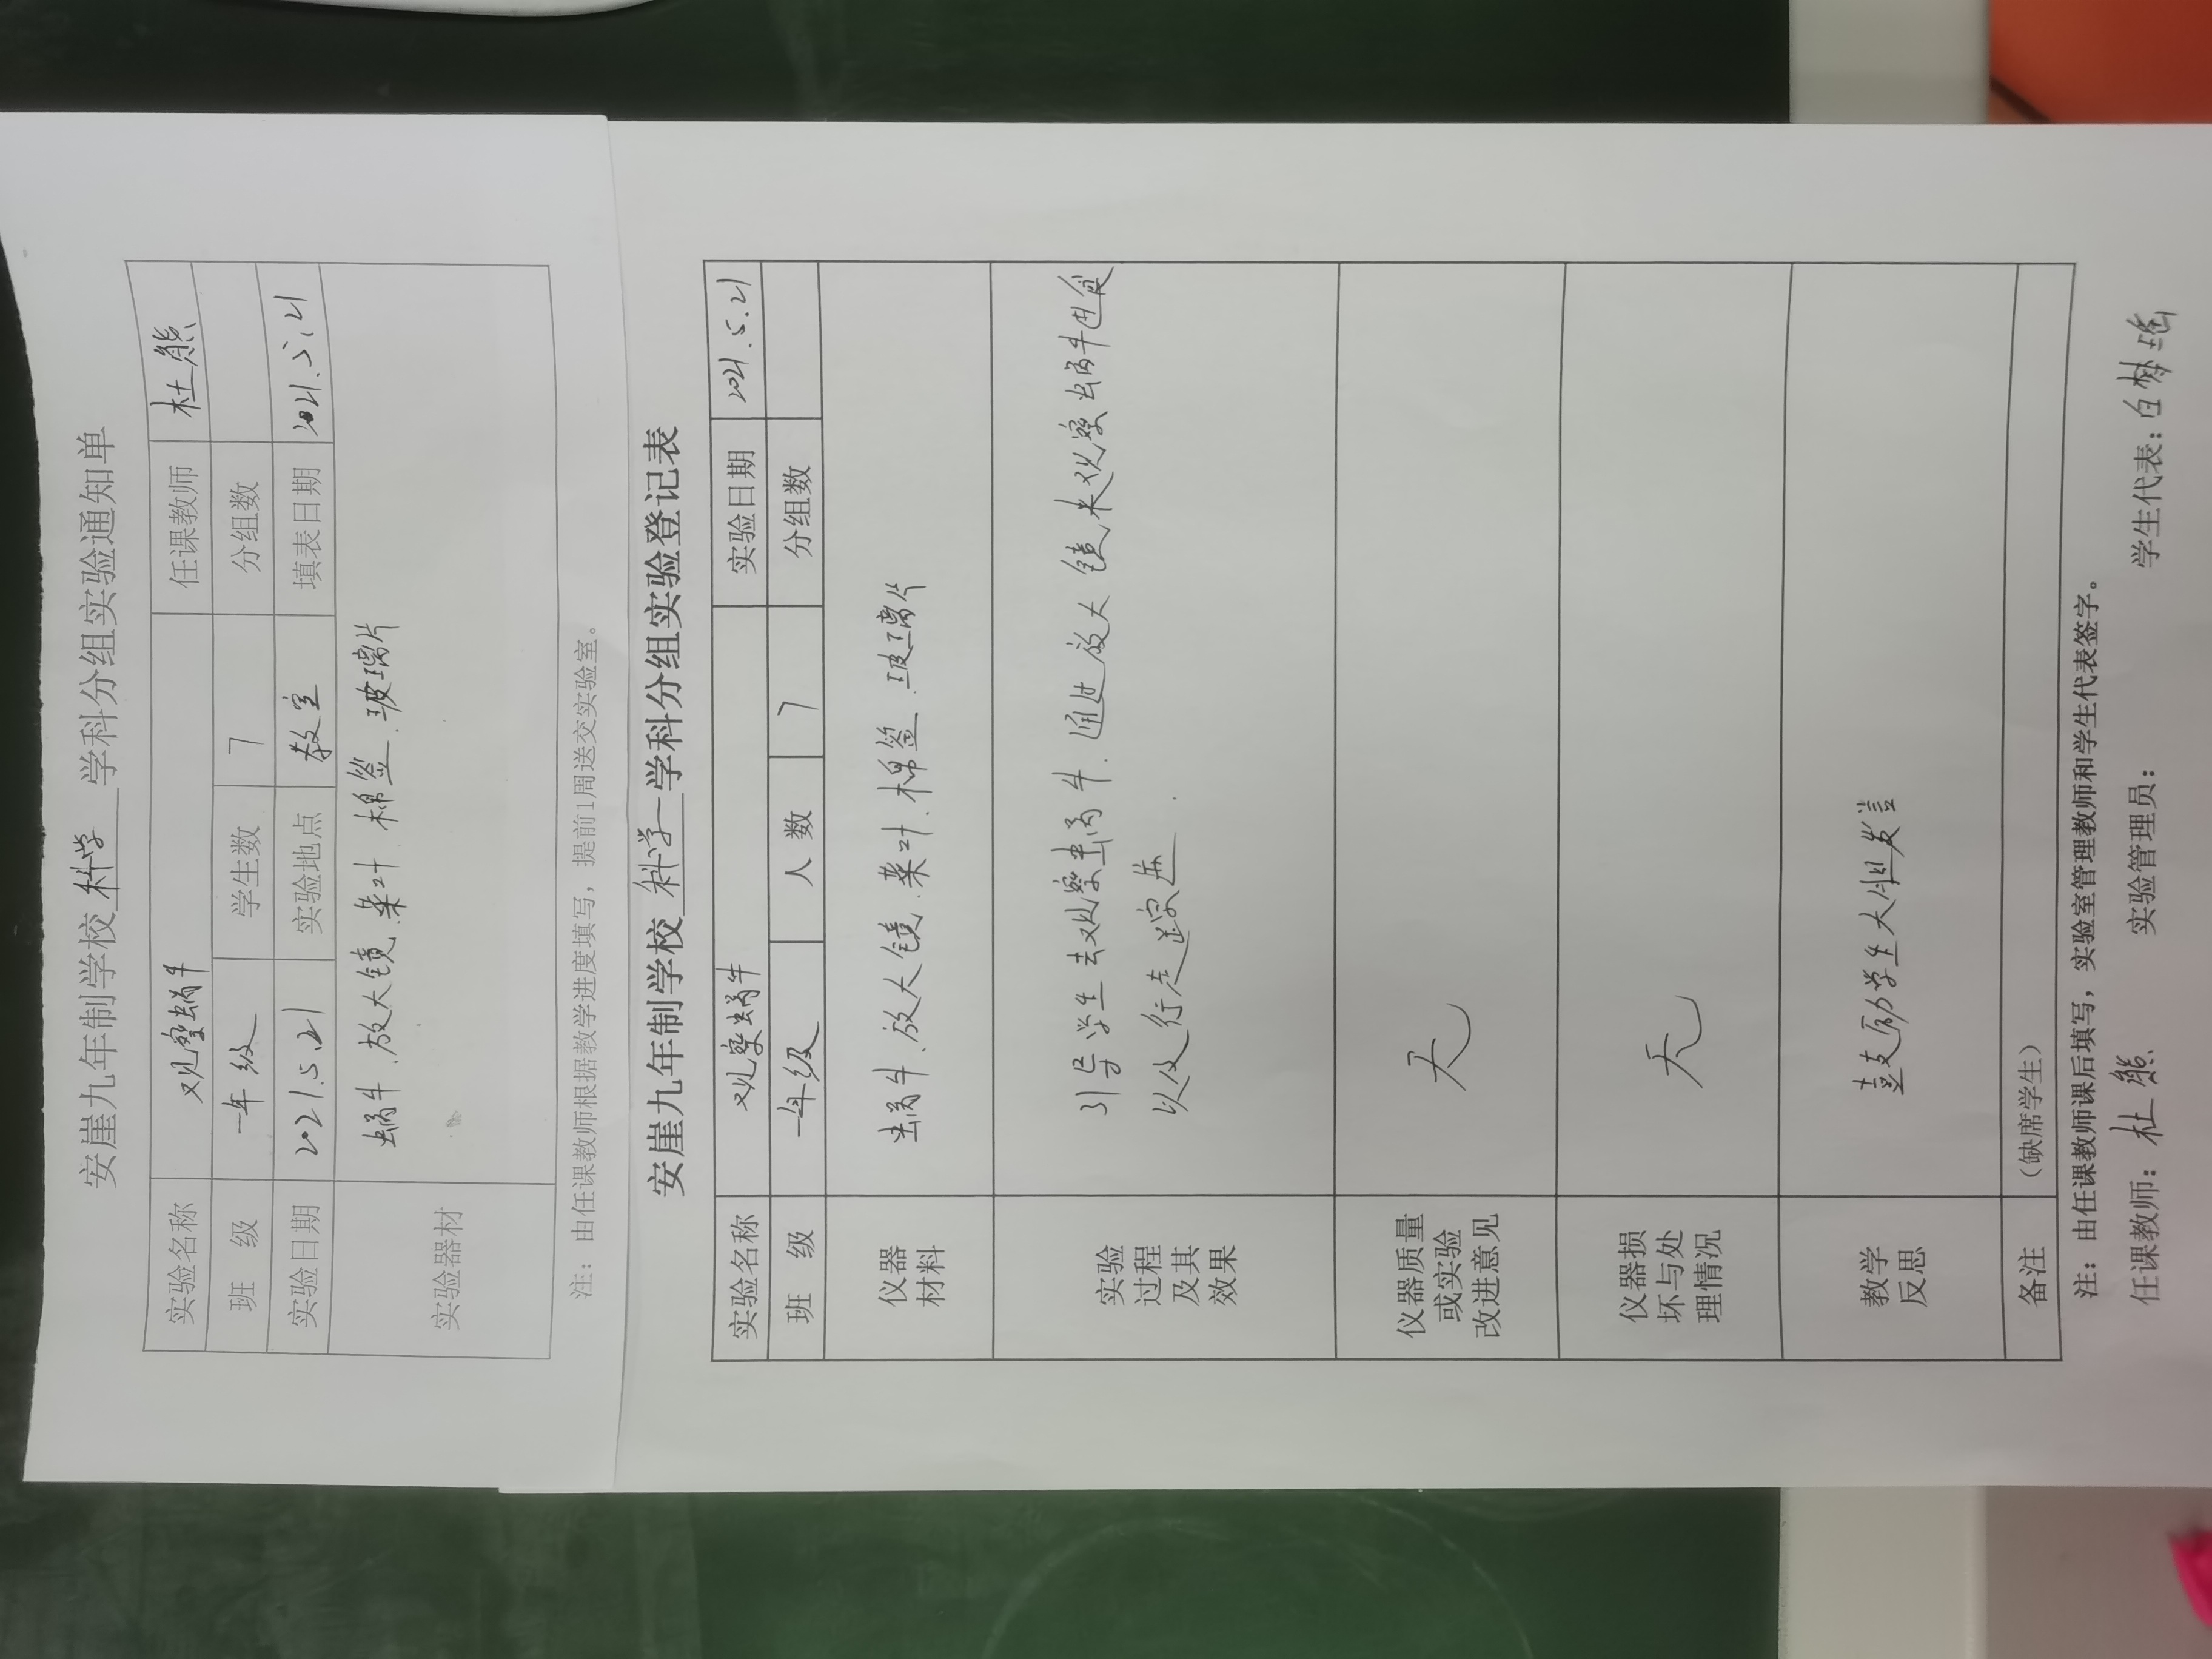 安崖九年制学校科学学科分组实验通知单
实验名称 观察蜗牛 任课教师 杜熊
班 级 一年级 学生数 7 分组数
实验日期 2021.5.21 实验地点 教室 填表日期 2021.5.21
实验器材 蜗牛.放大镜.菜叶.棉签.玻璃片
注：由任课教师根据教学进度填写，提前1周送交实验室。
安崖九年制学校科学学科分组实验登记表
实验名称 观察蜗牛 实验日期 2021.5.21
班 级 一年级 人 数 7 分组数
仪器
材料
蜗牛.放大镜.菜叶.棉签.玻璃片
实验
过程
及其
效果
引导学生去观察蜗牛.通过放大镜来观察蜗牛进食
以及行走
仪器质量
或实验
改进意见
无
仪器损
坏与处
理情况
无
教学
反思
鼓励学生大胆发言
备注 （缺席学生）
注：由任课教师课后填写，实验室管理教师和学生代表签字。
任课教师：杜熊 实验管理员： 学生代表：白